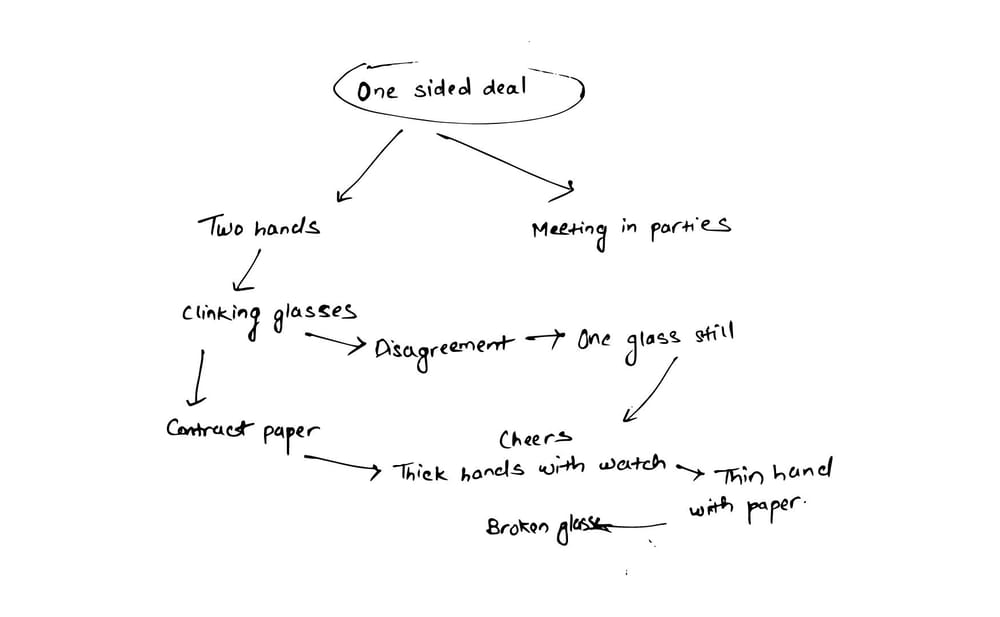 One sided deal
Two hands
Meeting in parties
Clinking glasses
Disagreement
One glass still
Contract paper
Cheers
Thick hands with watch
Thin hand
with paper.
Broken glasses